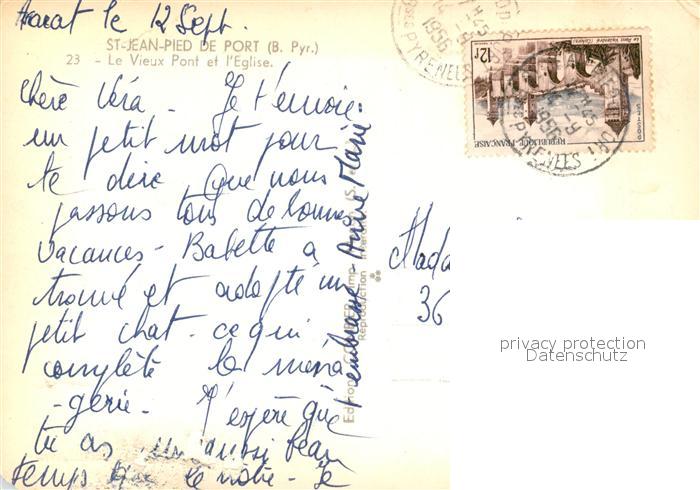 le 12 Sept.
ST-JEAN-PIED DE PORT (B. Pyr.)
23 - Le Vieux Pont et l'Eglise.
Chère Véra - Je t'envoie
un petit mot pour
te dire que nous
passons tous de bonnes
vacances - Babette a
trouvé et adopté un
petit chat - ce qui
complète la ména
-gerie - J'espère que
tu as un aussi beau
temps que le nôtre - Je
t'embrasse - André Marie
Reproduction
12f
REPUBLIQUE FRANÇAISE
1956
PYRENEES
1956
PYRENEES
Mada
36
privacy protection
Datenschutz